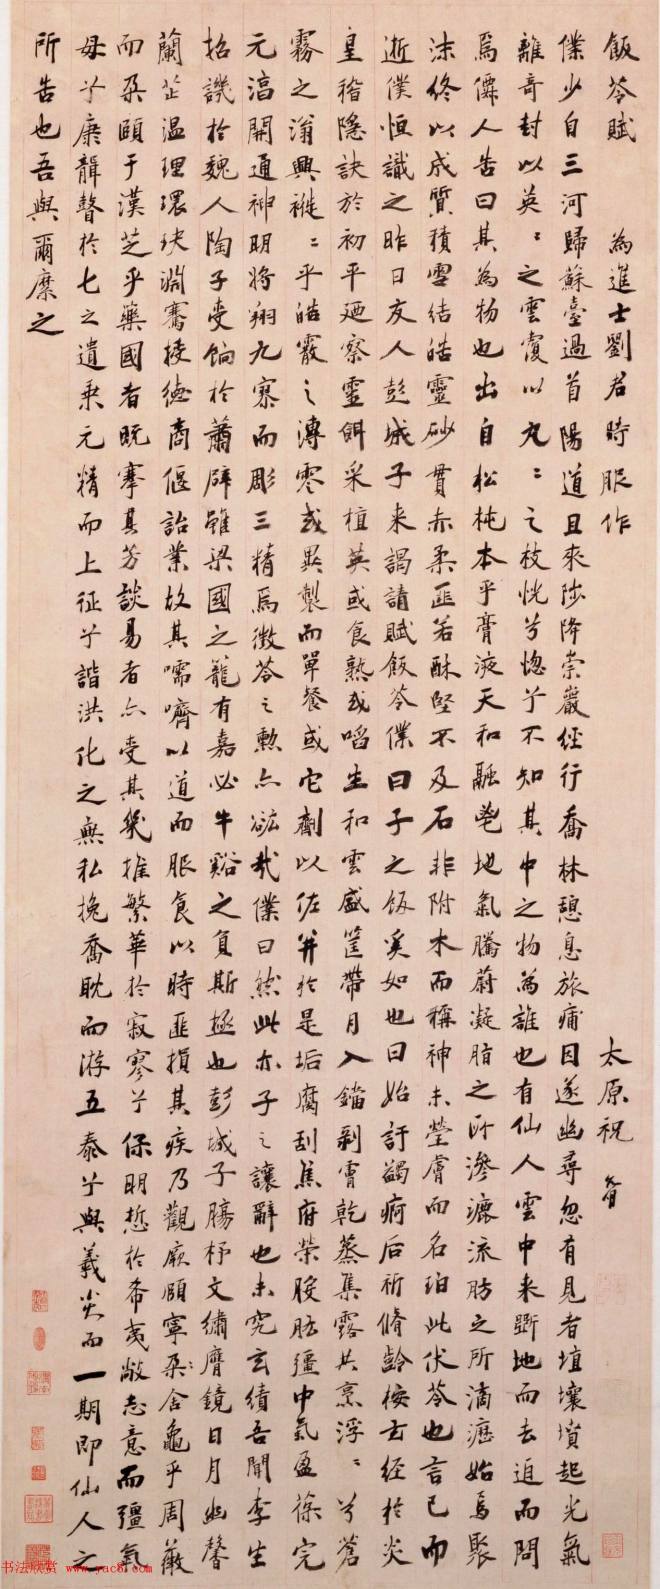 飯苓賦 為進士劉君時服作 太原祝
僕少自三河歸蘇臺過首陽道且來陟降崇巖經行喬林憩息旅痡因遂幽尋忽有見者埴壤墳起光氣
離奇封以英〻之雲覆以丸〻之枝恍兮惚兮不知其中之物為誰也有仙人雲中来斲地而去追而問
焉儛人告曰其為物也出自松杶本乎膏液天和融鬯地氣騰蔚凝脂之所滲漉流肪之所滴瀝始焉聚
沫終以成質積雪結皓靈砂貫赤柔匪若酥堅不及石非附木而稱神未瑩膚而名珀此伏苓也言已而
逝僕恒識之昨日友人彭城子来謁請賦飯苓僕曰子之飯奚如也曰始訏蠲痾后祈脩齡按玄經於炎
皇稽隱訣於初平廼察靈餌采植英或食熟或啗生和雲盛筐帶月入鐺剥膚乾蒸集露共烹浮〻兮蒼
霧之滃興褷〻乎皓霰之漙零或異製而單餐或它劑以佐并於是垢腐刮焦府榮朘肱彊中氣盈葆完
元滈開通神明將翔九寨而彫三精焉微苓之勲亦谹哉僕曰然此亦子之讓辭也未究玄績吾聞李生
招譏於魏人陶子受餉於蕭辟雖梁國之寵有嘉必牛谿之負斯極也彭城子腸杼文繡膺鏡日月幽馨
蘭芷温理環玦淵騫挍德商偃詒業故其嚅嚌以道而服食以時匪損其疾乃觀厥頤寧朶舍龜乎周蔽
而朶頤于漢芝乎藥國者既搴其芳談昜者亦受其幾推繁華於寂寥兮保明悊於希夷敞志意而彊氣
毋兮康韻謦於七之遺乗元精而上征兮諧洪化之無私挽喬耽而游五泰兮與羲炎而一期即仙人之
所告也吾與爾縻之
书法欣赏 www.yac8.com